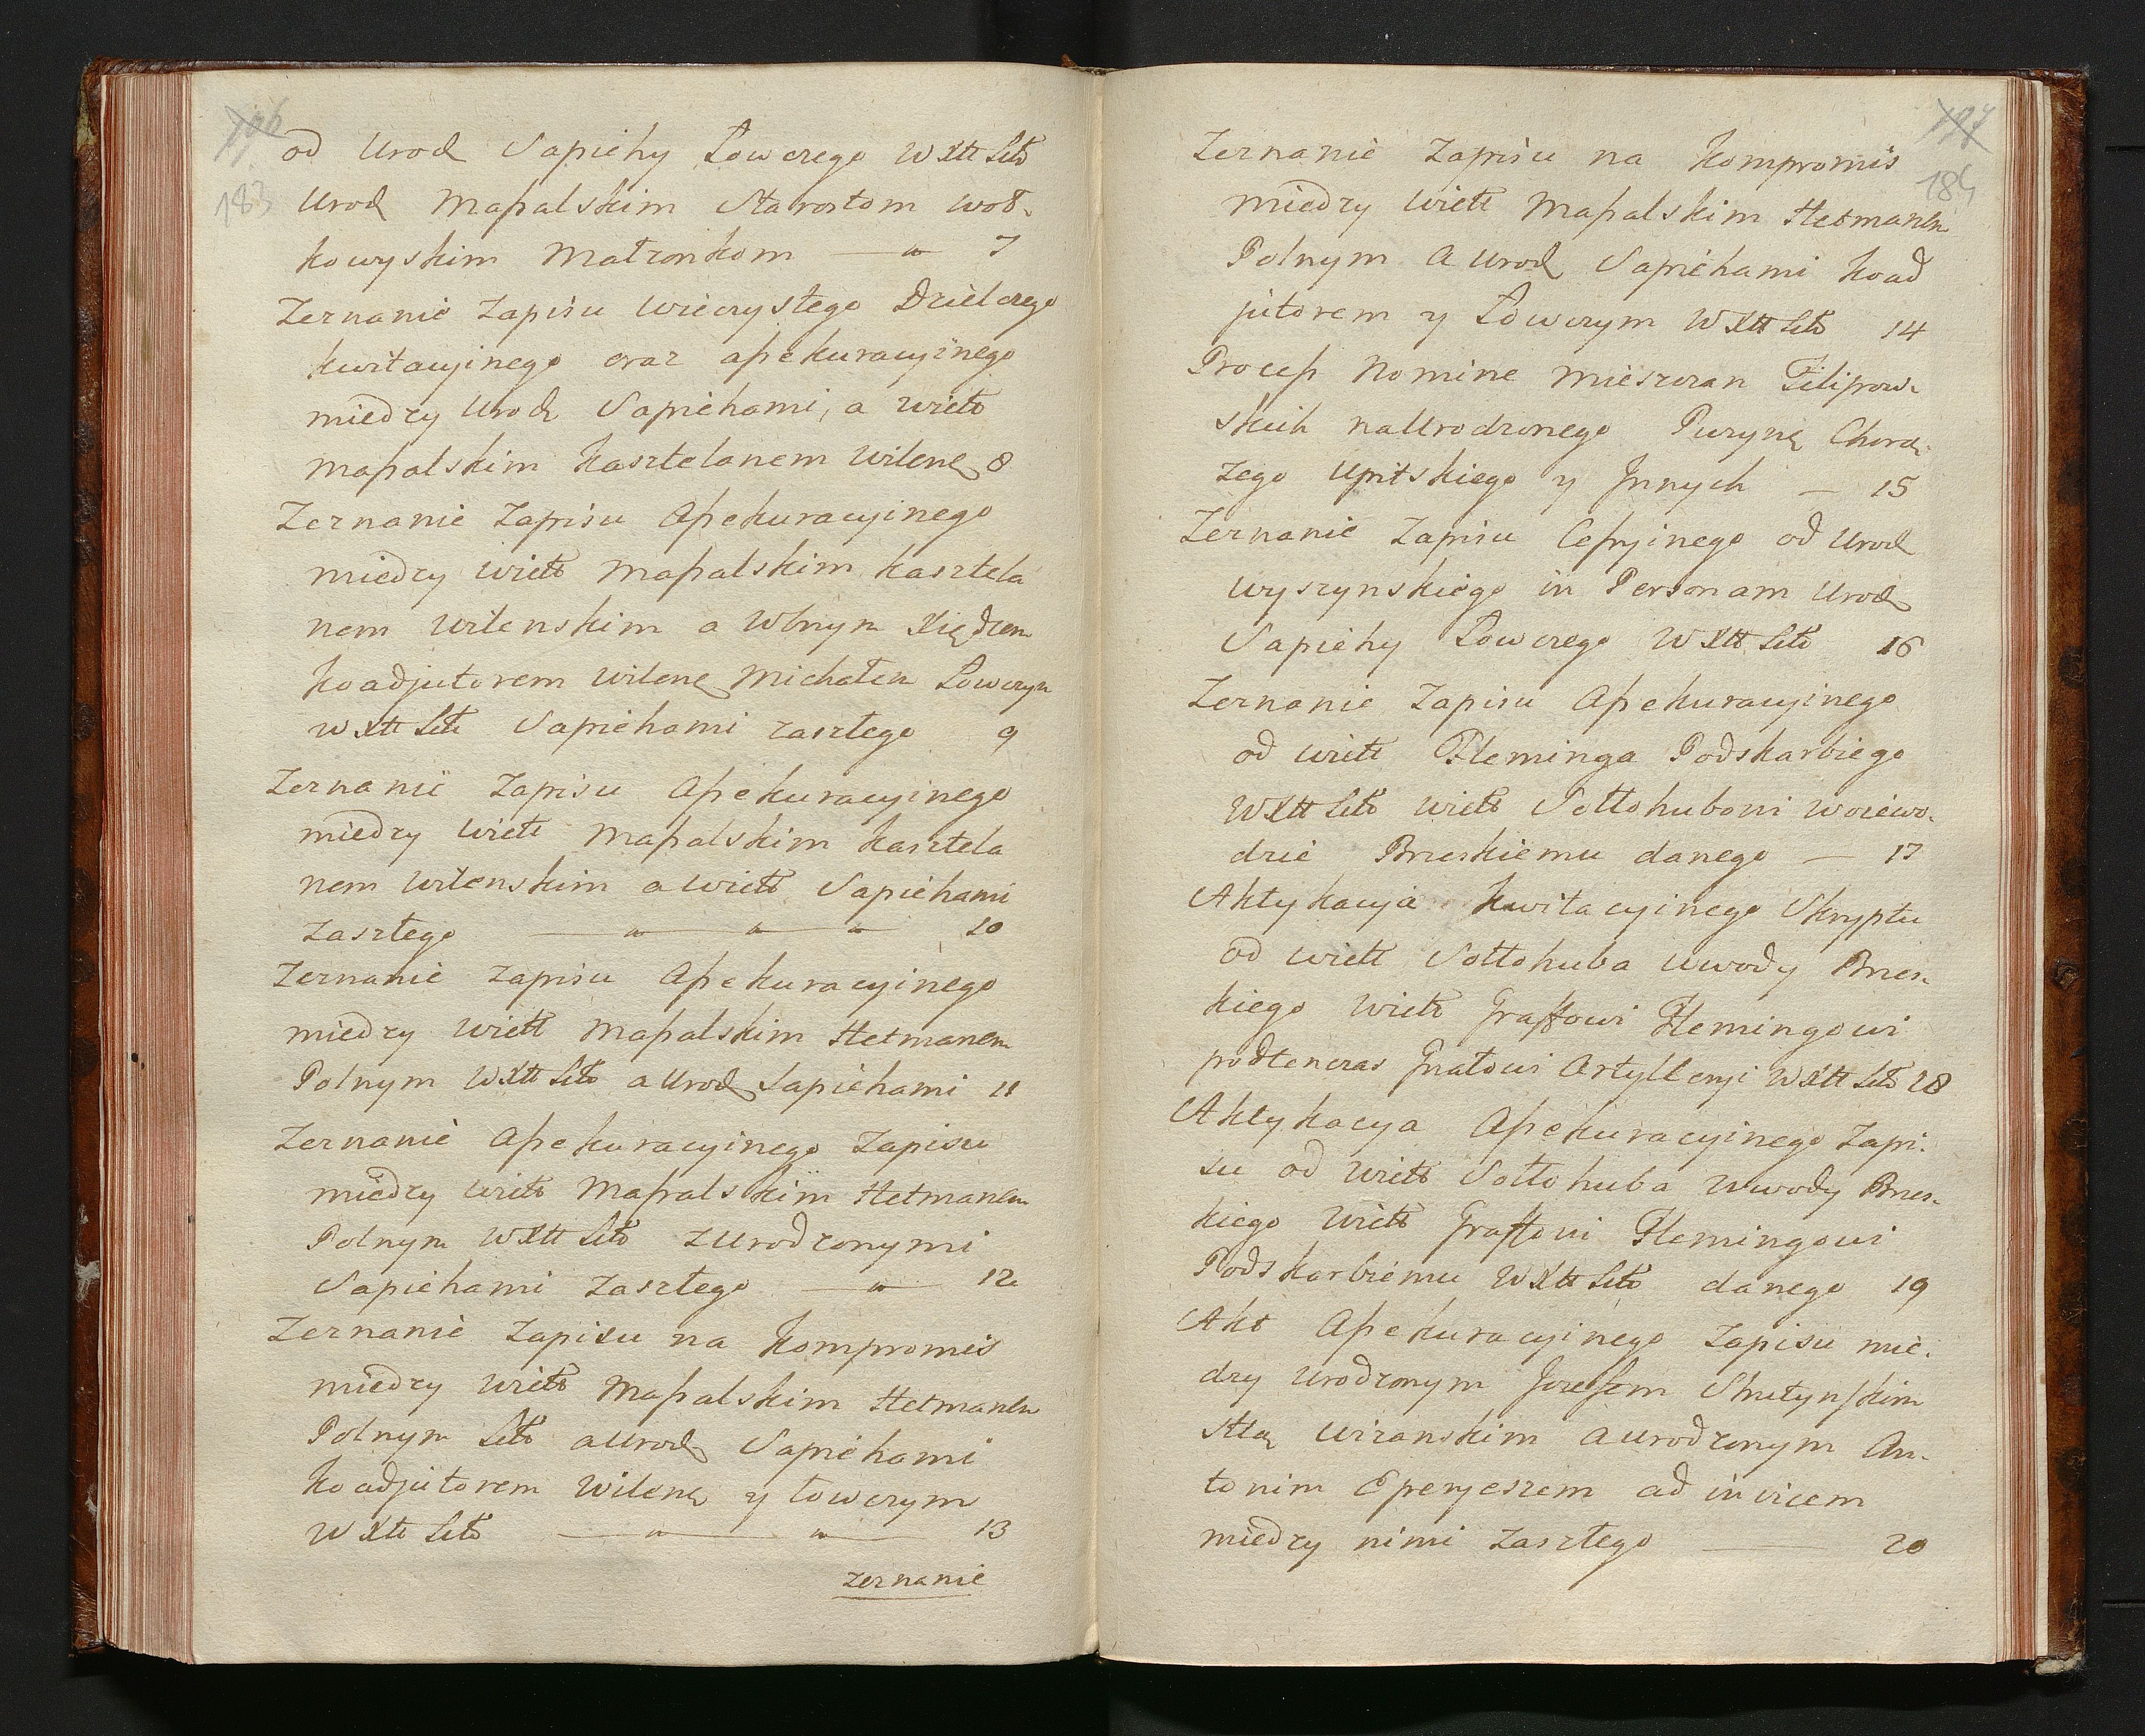 183
od Urod Sapiehy Łowczego WXtt Litto
Urod Massalskim Starostom woł-
kowyskim Małżonkom — " 7
Zeznanie Zapisu Wieczystego Dzielczego
kwitacyinego oraz assekuracyinego
miedzy Urod Sapiehami, a Wielto
Massalskim Kasztelanem Wilenę 8
Zeznanie Zapisu Assekuracyinego
miedzy Wielto Massalskim Kasztela
nem Wilenskim a Wbnym Xiędzem
Koadjutorem Wilenę Michałem Łowczym
WXtt Litt Sapiehami zaszłego 9
Zeznanie Zapisu Assekuracyinego
miedzy Wielt Massalskim Kasztela
nem Wilenskim a Wielto Sapiehami
Zaszłego — " — " — " — 10
Zeznanie Zapisu Assekuracyinego
miedzy Wielt Massalskim Hetmanem
Polnym WXtt Litto a Urod Sapiehami 11
Zeznanie Assekuracyinego Zapisu
miedzy Wielto Massalskim Hetmanem
Polnym WXtt Litto z Urodzonymi
Sapiehami Zaszłego — " — 12
Zeznanie Zapisu na Kompromis
miedzy Wielto Massalskim Hetmanem
Polnym Litto a Urod Sapiehami
Koadjutorem Wilenę y Łowczym
WXtt Litto — " — " — 13
Zeznanie
184
Zeznanie Zapisu na Kompromis
miedzy Wielt Massalskim Hetmanem
Polnym a Urod Sapiehami Koad
jutorem y Łowczym WXtt Litto 14
Process Nomine Mieszczan Filipow-
skich na Urodzonego Puzynę Chorą-
żego Upitskiego y Jnnych — 15
Zeznanie Zapisu Cessyinego od Urod
Wyszynskiego in Personam Urod
Sapiehy Łowczego WXtt Litto 16
Zeznanie Zapisu Assekuracyinego
od Wielt Fleminga Podskarbiego
WXtt Litto Wielto Sołłohubowi Woiewo-
dzie Brzeskiemu danego — 17
Aktykacya Kwitacyinego Skryptu
od Wielt Sołłohuba Wwody Brzes-
kiego Wielt Graffowi Flemingowi
podtenczas Gnałowi Artylleryi WXtt Litto 18
Aktykacya Assekuracyinego Zapi-
su od Wielto Sołłohuba Wwody Brzes-
kiego Wielt Graffowi Flemingowi
Podskarbiemu WXtt Litto danego 19
Akt Assekuracyinego Zapisu mie-
dzy Urodzonym Jozefem
Sttą Wizanskim a Urodzonym An-
tonim Eperyeszem ad invicem
miedzy nimi Zaszłego — 20